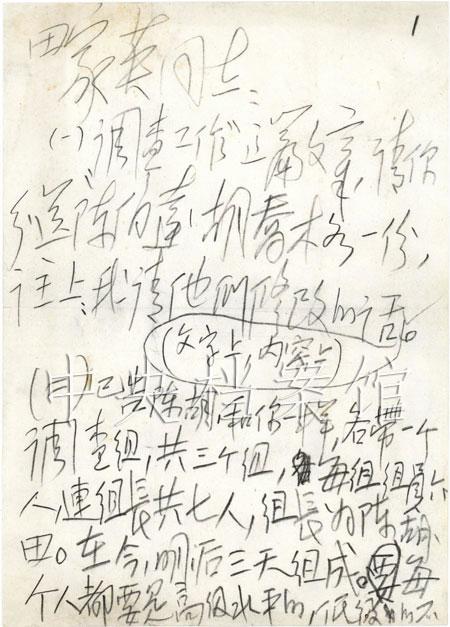 1
田家英同志:
(一)《调查工作》这篇文章,请你
分送陈伯达、胡乔木各一份,
注上我请他们修改的话。
(文字上,内容上)
(二)已告陈、胡,和你一样,各带一个
调查组,共三个组,每组组员六
人,连组长共七人,组长为陈、胡、
田。在今、明、后三天组成。每
个人都要是高级水平的,低级的不
中央档案馆